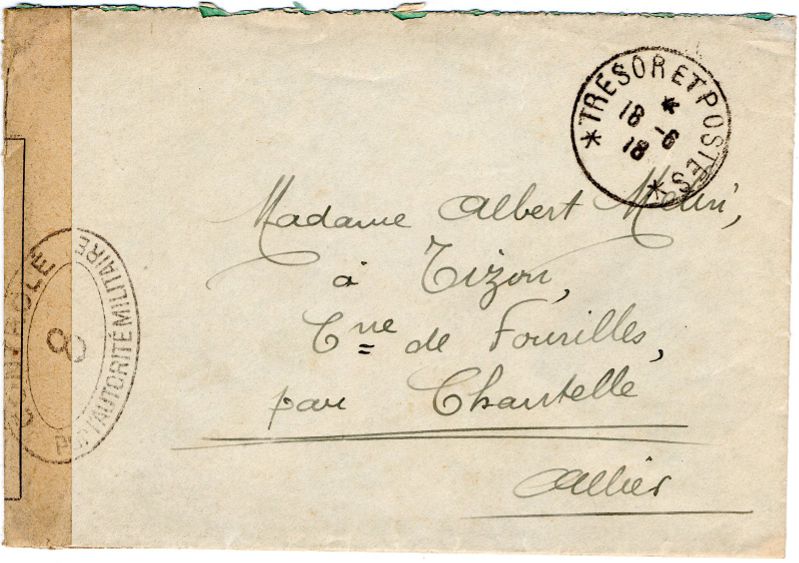 * TRESOR ET POSTES *
*
18 -6
18
Madame Albert
à Tizon,
Cne de Fourilles,
par Chantelle
Allier
CONTROLÉ
PAR L'AUTORITÉ MILITAIRE
8